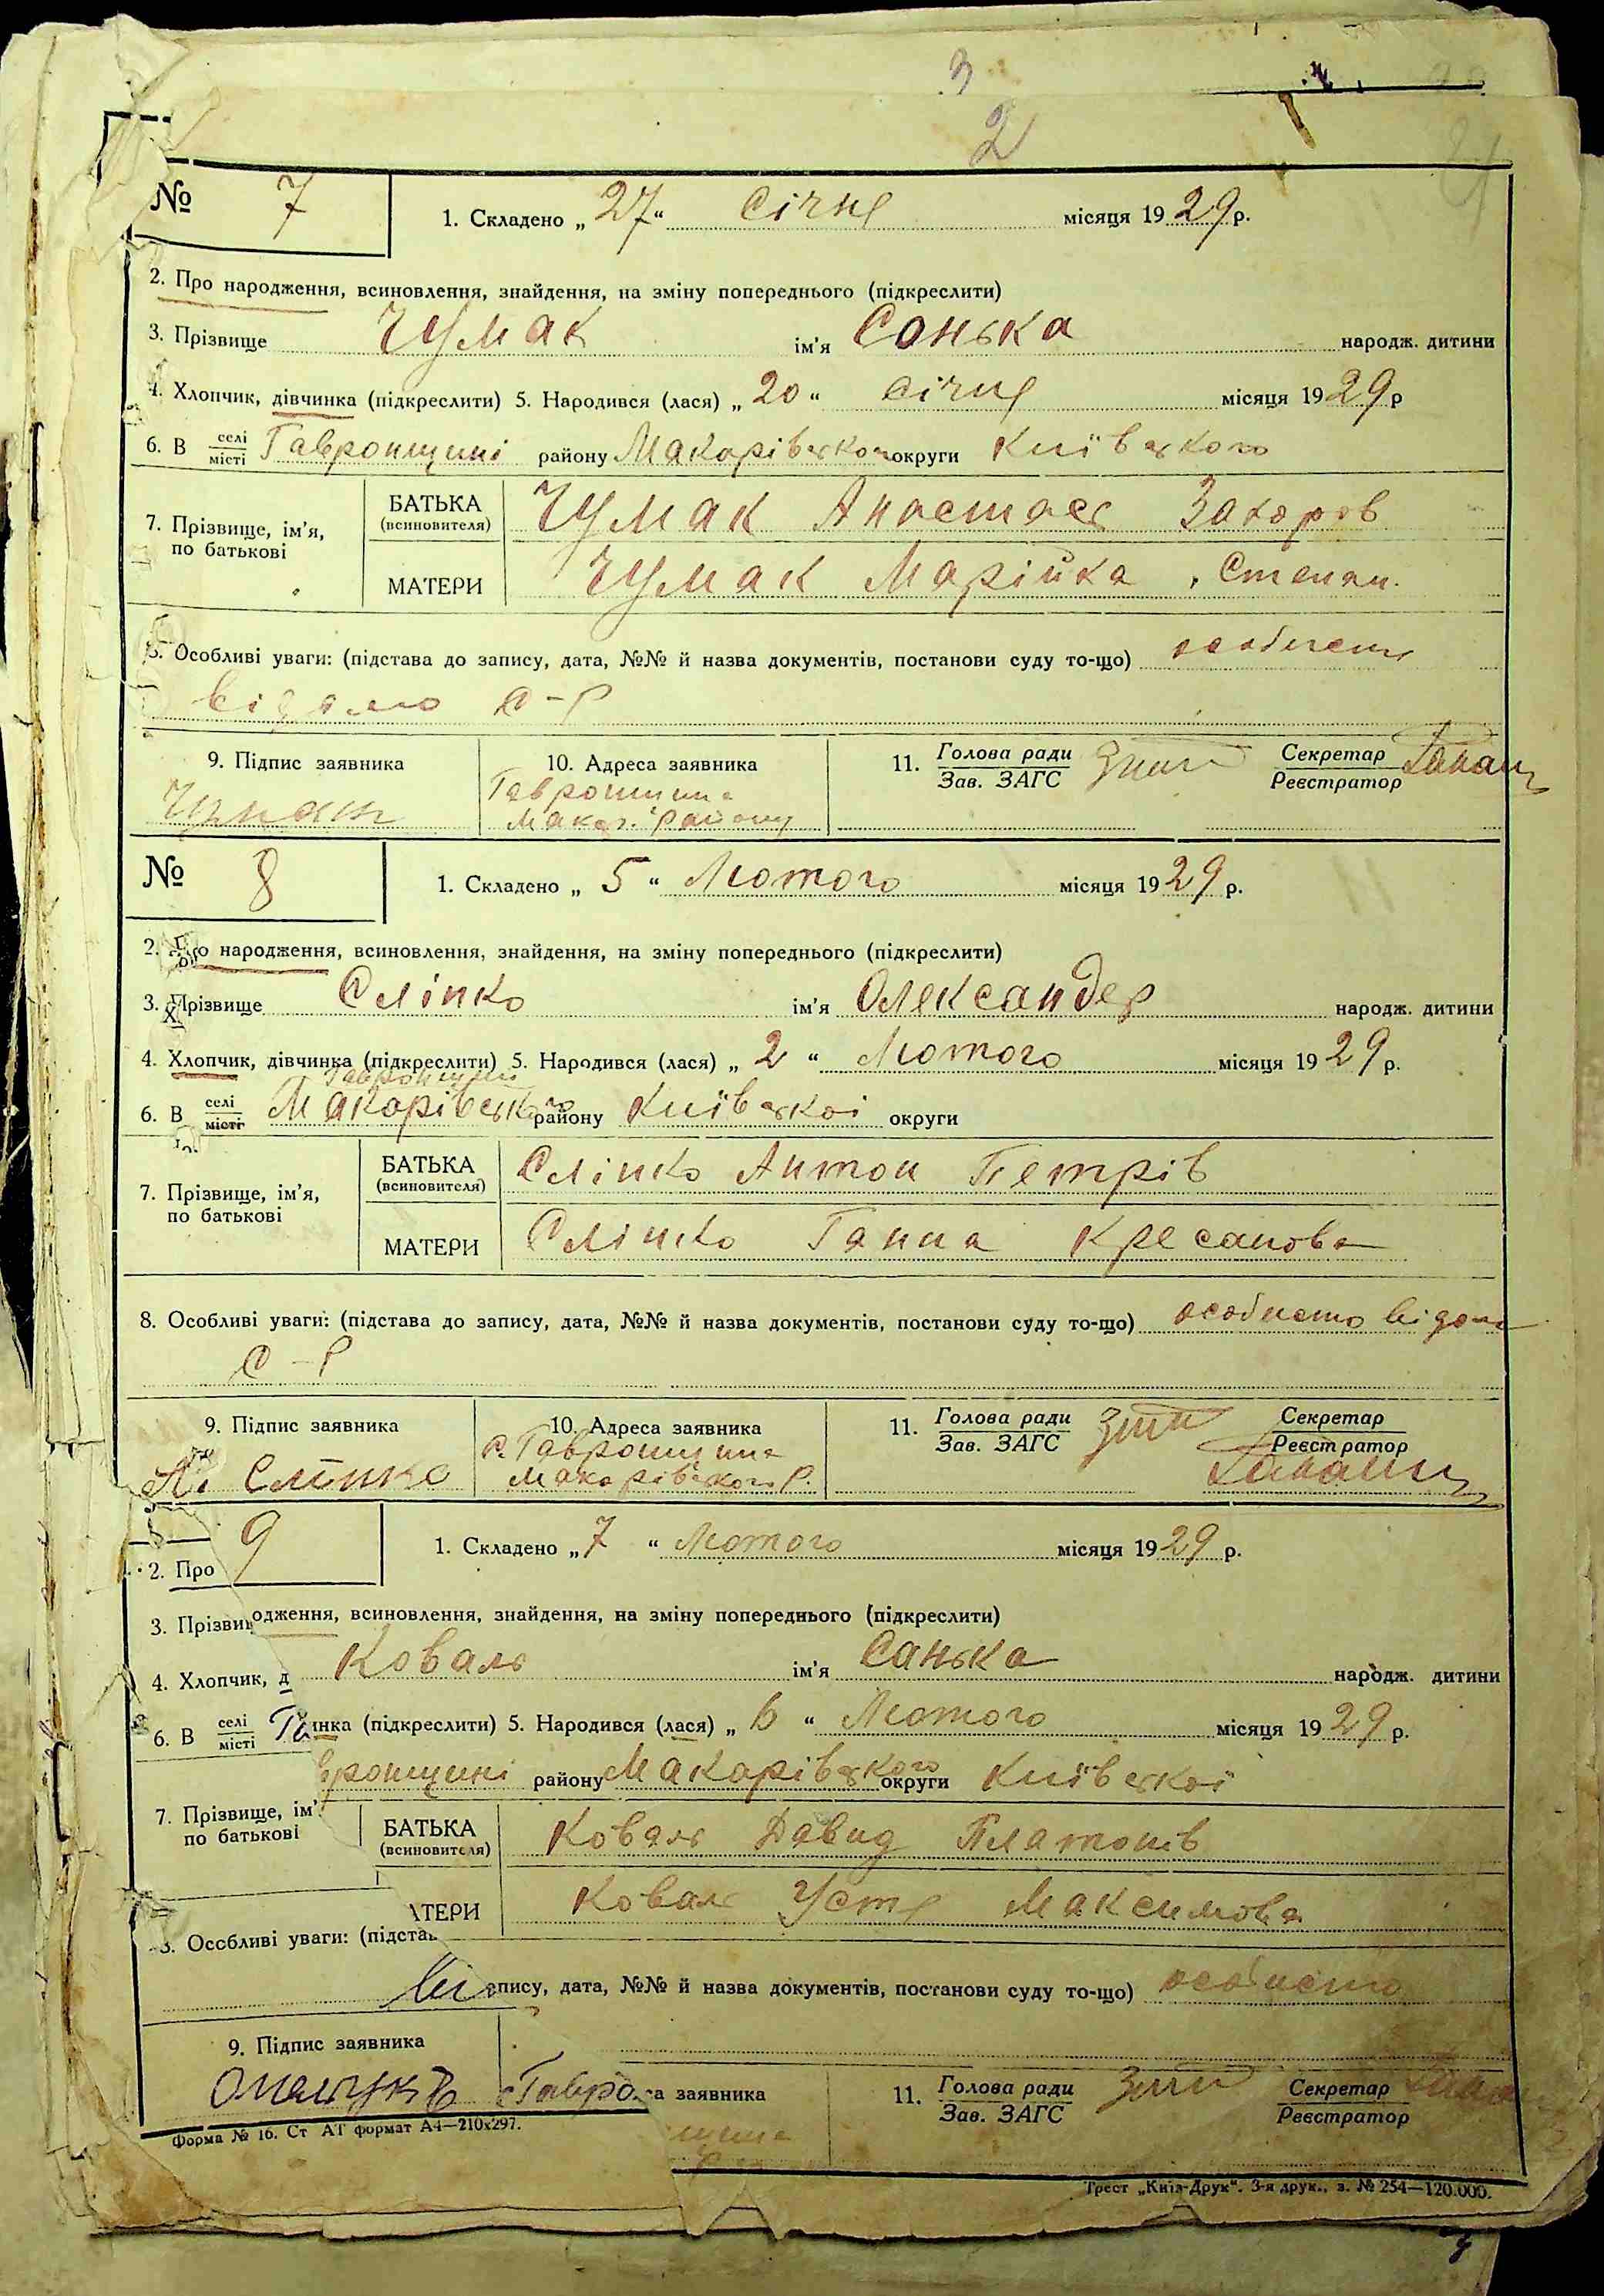 3
2
№ 7
1. Складено „27“ Січня місяця 1929 р.
2. Про народження, всиновлення, знайдення, на зміну попереднього (підкреслити)
3. Прізвище Чумак ім'я Сонька народж. дитини
4. Хлопчик, дівчинка (підкреслити) 5. Народився (лася) „20“ січня місяця 1929 р
6. В селі місті Гавронщині району Макарівського округи Київського
7. Прізвище, ім'я, по батькові
БАТЬКА (всиновителя) Чумак Анастась Захоров
МАТЕРИ Чумак Марійка Степан.
8. Особливі уваги: (підстава до запису, дата, №№ й назва документів, постанови суду то-що) особисто
відомо С-Р
9. Підпис заявника 10. Адреса заявника 11. Голова ради Зав. ЗАГС Секретар Реєстратор
Гавронщина
Макар. Району
№ 8
1. Складено „5“ Лютого місяця 1929 р.
2. Про народження, всиновлення, знайдення, на зміну попереднього (підкреслити)
3. Прізвище Сліпко ім'я Олександер народж. дитини
4. Хлопчик, дівчинка (підкреслити) 5. Народився (лася) „2“ Лютого місяця 1929 р.
Гавронщині
6. В селі місті Макарівського району Київської округи
7. Прізвище, ім'я, по батькові
БАТЬКА (всиновителя) Сліпко Антон Петрів
МАТЕРИ Сліпко Ганна Кресанова
8. Особливі уваги: (підстава до запису, дата, №№ й назва документів, постанови суду то-що) особисто відомо
С-Р
9. Підпис заявника 10. Адреса заявника 11. Голова ради Зав. ЗАГС Секретар Реєстратор
с. Гавронщина
Сліпко Макарівського Р.
9
1. Складено „7“ Лютого місяця 1929 р.
2. Про
одження, всиновлення, знайдення, на зміну попереднього (підкреслити)
3. Прізвищ
Коваль ім'я Санька народж. дитини
4. Хлопчик, д
инка (підкреслити) 5. Народився (лася) „6“ Лютого місяця 1929 р.
6. В селі місті Га
вронщині району Макарівського округи Київської
7. Прізвище, ім' по батькові
БАТЬКА (всиновителя) Коваль Давид Платонів
АТЕРИ Коваль Устя Максимова
8. Особливі уваги: (підстав
апису, дата, №№ й назва документів, постанови суду то-що) особисто
9. Підпис заявника
Гавро
са заявника 11. Голова ради Зав. ЗАГС Секретар Реєстратор
Форма № 16. Ст АТ формат А4—210х297.
Трест „Київ-Друк“. 3-я друк., з. № 254—120.000.